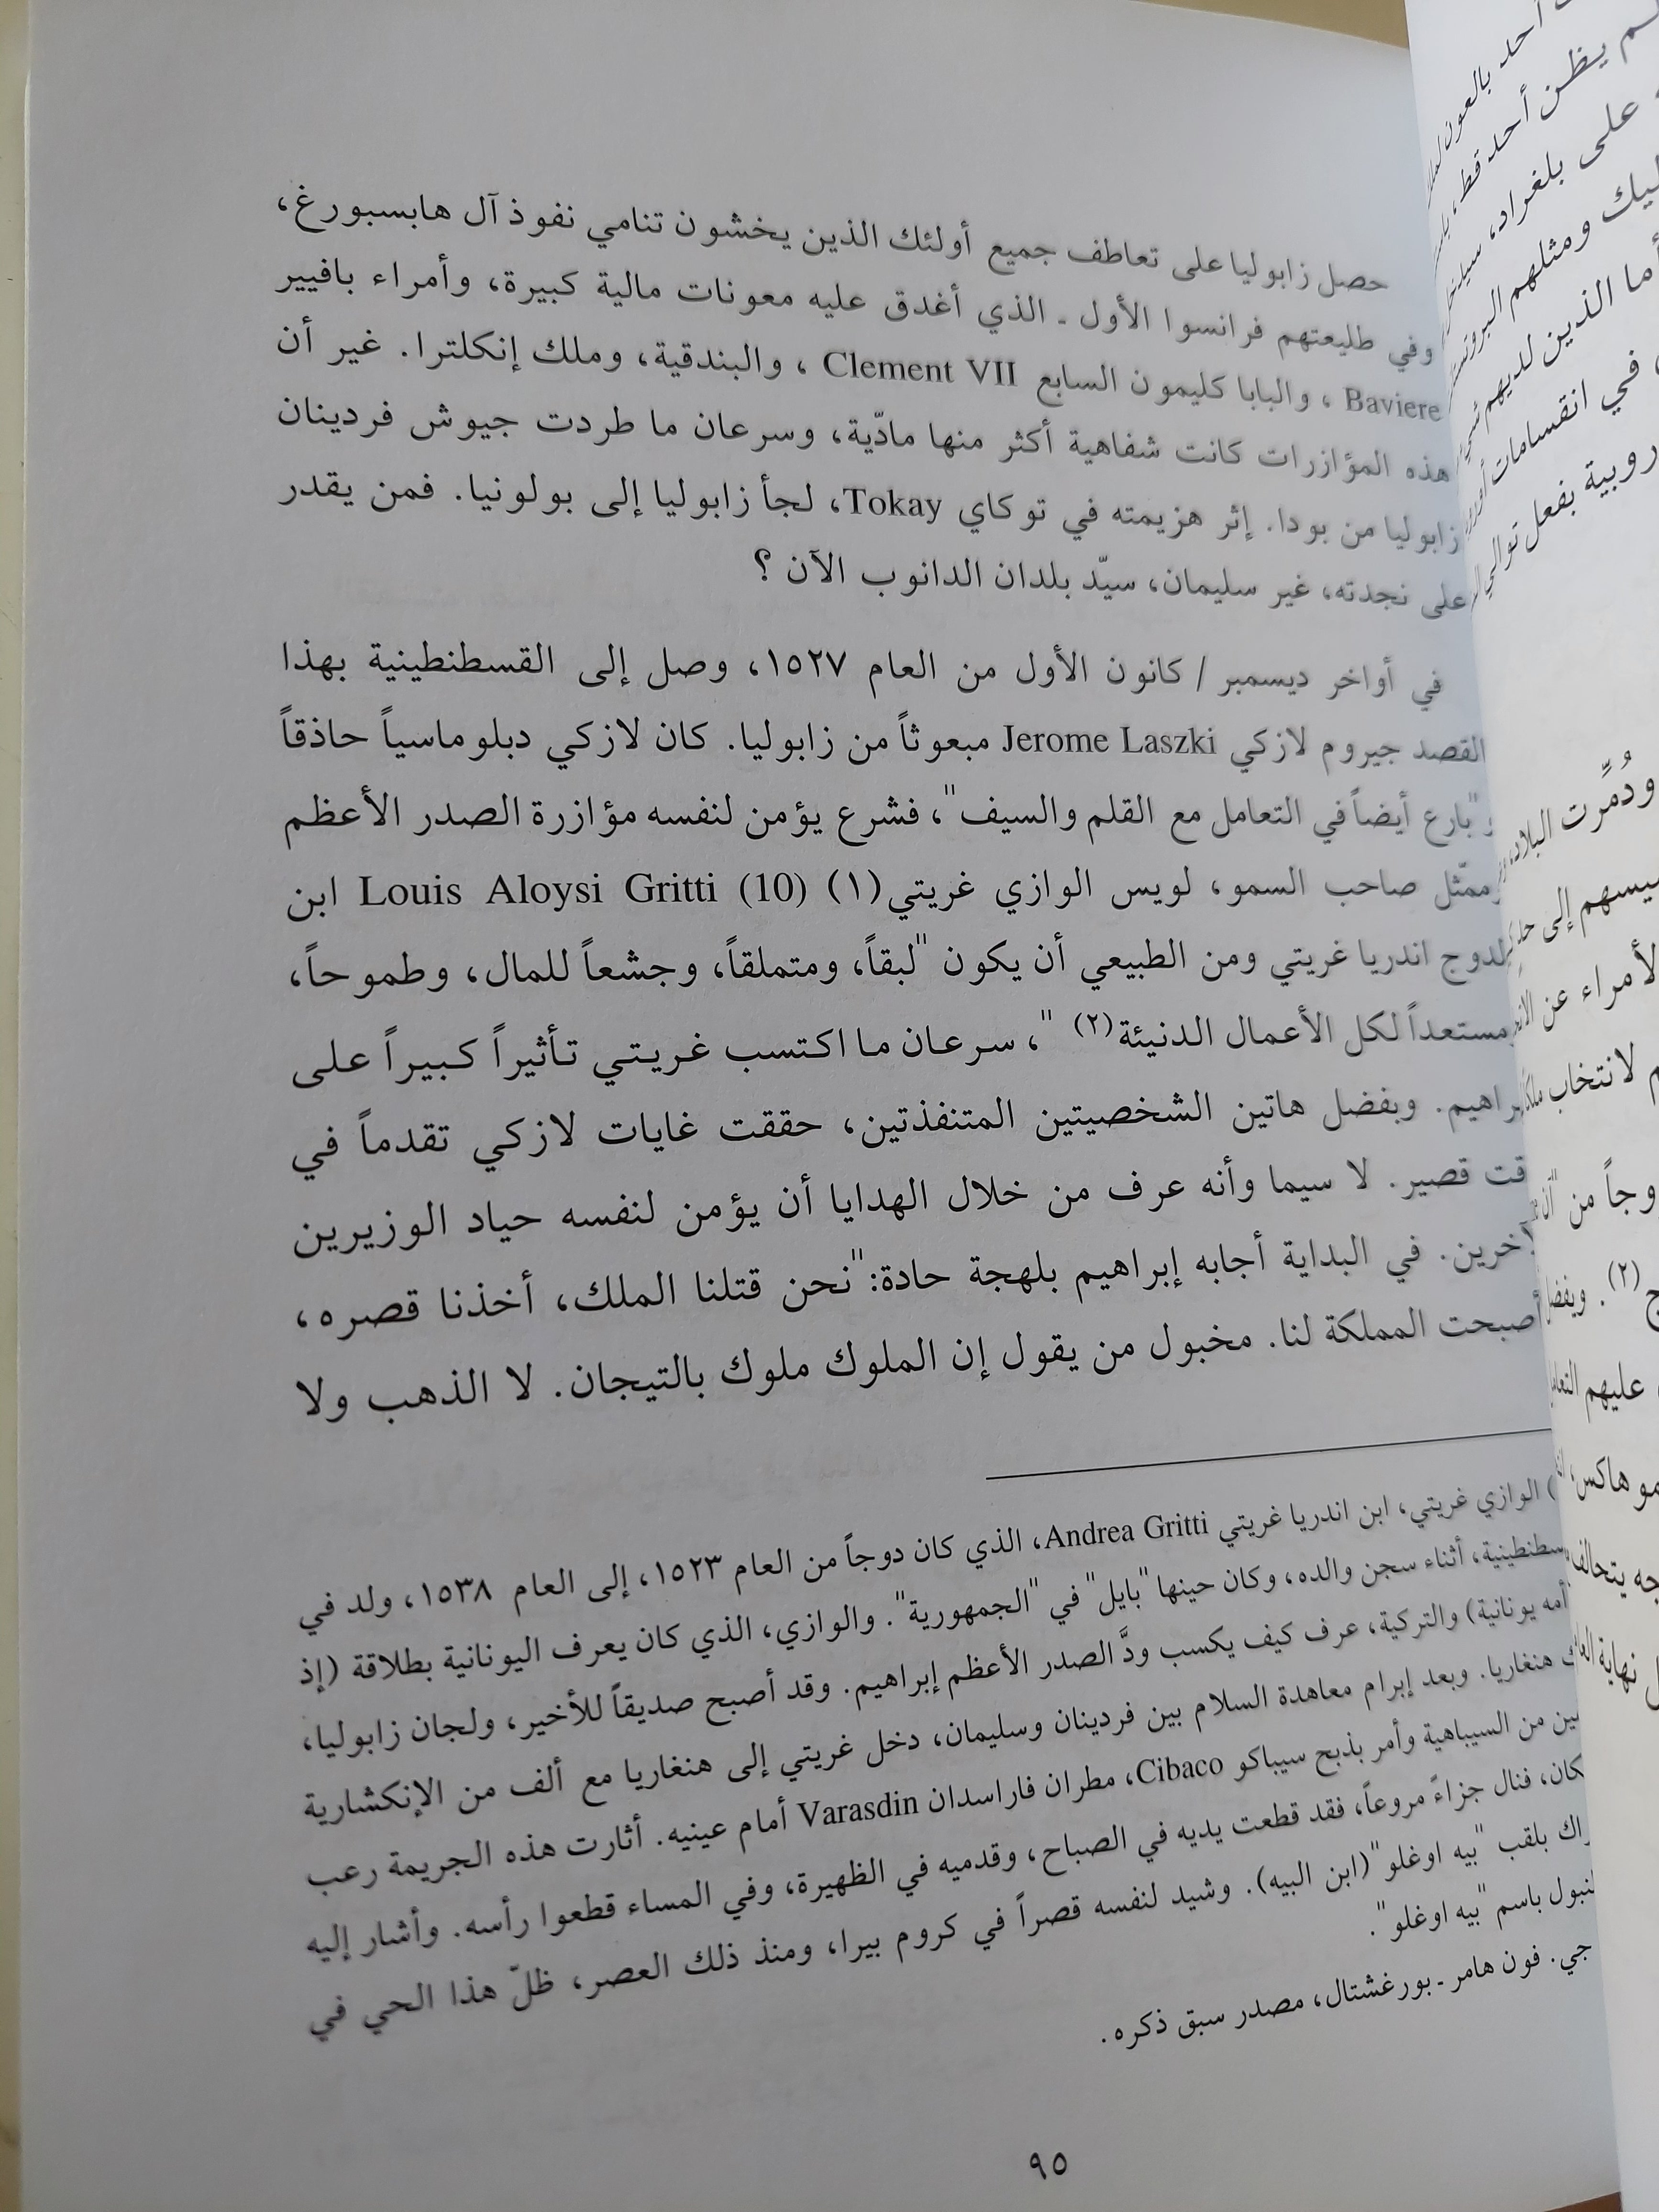 حصل زابوليا على تعاطف جميع أولئك الذين يخشون تنامي نفوذ آل هابسبورغ،
وفي طليعتهم فرانسوا الأول ـ الذي أغدق عليه معونات مالية كبيرة، وأمراء بافيير
Baviere ، والبابا كليمون السابع Clement VII ، والبندقية، وملك إنكلترا. غير أن
هذه المؤازرات كانت شفاهية أكثر منها مادّية، وسرعان ما طردت جيوش فردينان
زابوليا من بودا. إثر هزيمته في توكاي Tokay، لجأ زابوليا إلى بولونيا. فمن يقدر
على نجدته، غير سليمان، سيّد بلدان الدانوب الآن ؟
في أواخر ديسمبر / كانون الأول من العام ١٥٢٧، وصل إلى القسطنطينية بهذا
القصد جيروم لازكي Jerome Laszki مبعوثاً من زابوليا. كان لازكي دبلوماسياً حاذقاً
و"بارع أيضاً في التعامل مع القلم والسيف"، فشرع يؤمن لنفسه مؤازرة الصدر الأعظم
وممثّل صاحب السمو، لويس الوازي غريتي(١) Louis Aloysi Gritti (10) ابن
الدوج اندريا غريتي ومن الطبيعي أن يكون "لبقاً، ومتملقاً، وجشعاً للمال، وطموحاً،
مستعداً لكل الأعمال الدنيئة(٢) "، سرعان ما اكتسب غريتي تأثيراً كبيراً على
إبراهيم. وبفضل هاتين الشخصيتين المتنفذتين، حققت غايات لازكي تقدماً في
قت قصير. لا سيما وأنه عرف من خلال الهدايا أن يؤمن لنفسه حياد الوزيرين
الآخرين. في البداية أجابه إبراهيم بلهجة حادة:"نحن قتلنا الملك، أخذنا قصره،
أصبحت المملكة لنا. مخبول من يقول إن الملوك ملوك بالتيجان. لا الذهب ولا
) الوازي غريتي، ابن اندريا غريتي Andrea Gritti، الذي كان دوجاً من العام ١٥٢٣، إلى العام ١٥٣٨، ولد في
سطنطينية، أثناء سجن والده، وكان حينها "بايل" في "الجمهورية". والوازي، الذي كان يعرف اليونانية بطلاقة (إذ
أمه يونانية) والتركية، عرف كيف يكسب ودَّ الصدر الأعظم إبراهيم. وقد أصبح صديقاً للأخير، ولجان زابوليا،
ك هنغاريا. وبعد إبرام معاهدة السلام بين فردينان وسليمان، دخل غريتي إلى هنغاريا مع ألف من الإنكشارية
ين من السيباهية وأمر بذبح سيباكو Cibaco، مطران فاراسدان Varasdin أمام عينيه. أثارت هذه الجريمة رعب
كان، فنال جزاءً مروعاً، فقد قطعت يديه في الصباح، وقدميه في الظهيرة، وفي المساء قطعوا رأسه. وأشار إليه
راك بلقب "بيه اوغلو"(ابن البيه). وشيد لنفسه قصراً في كروم بيرا، ومنذ ذلك العصر، ظلّ هذا الحي في
نبول باسم "بيه اوغلو".
جي. فون هامر ـ بورغشتال، مصدر سبق ذكره.
٩٥